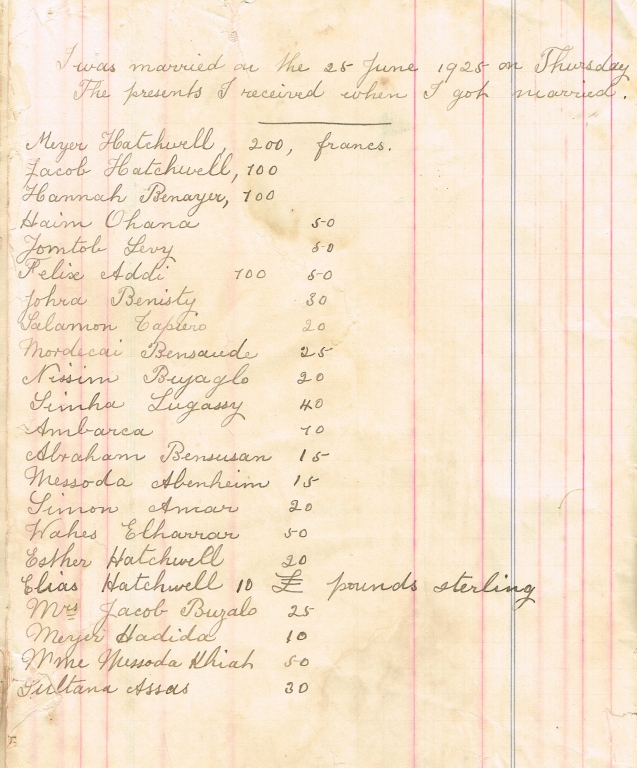 I was married on the 25 June 1925 on Thursday
The presents I received when I got married.
Meyer Hatchwell, 200, francs.
Jacob Hatchwell, 100
Hannah Benayer, 100
Haim Ohana 50
Jomtob Levy 50
Felix Addi 100 50
Johra Benisty 30
Salamon Tapiero 20
Mordecai Bensaude 25
Nissim Buyaglo 20
Simha Lugassy 40
Ambarca 10
Abraham Bensusan 15
Messoda Abenheim 15
Simon Amar 20
Wahes Elharrar 50
Esther Hatchwell 20
Elias Hatchwell 10 £ pounds sterling
Mrs Jacob Buzalo 25
Meyer Hadida 10
Mme Messoda Khiah 50
Sultana Assas 30